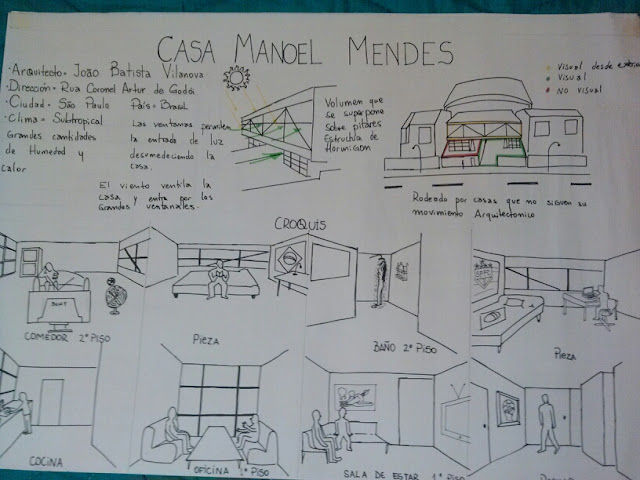 CASA MANOEL MENDES
·Arquitecto· João Batista Vilanova
·Dirección· Rua Coronel Artur de Godói
·Ciudad· São Paulo País· Brasil
·Clima· Subtropical
Grandes cantidades
de Humedad y
calor
Las ventanas permiten
la entrada de luz
desumedeciendo la
casa.
El viento ventila la
casa y entra por los
Grandes ventanales.
Volumen que
se superpone
sobre pilares
Estructura de
Hormigon
Visual desde exterior
Visual
No visual
Rodeado por casas que no siguen su
movimiento Arquitectonico
CROQUIS
COMEDOR 2º PISO
PIEZA
BAÑO 2º PISO
PIEZA
COCINA
OFICINA 1º PISO
SALA DE ESTAR 1º PISO